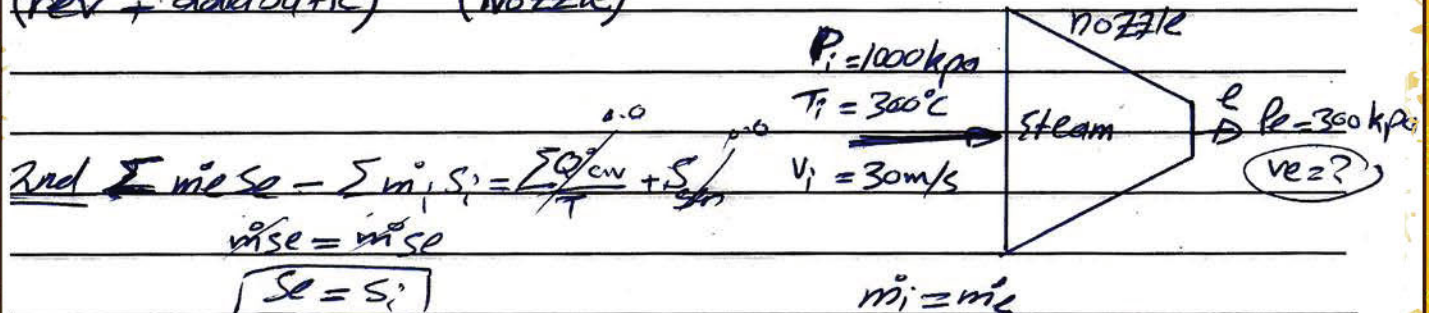 (rev + adiabatic) (Nozzle)
nozzle
Pi = 1000 kpa
Ti = 300°C
Vi = 30 m/s
steam
e
Pe = 300 kpa
ve = ?
2nd Σ ṁe se - Σ ṁi si = ΣQ̇cv/T + Ṡgen
→0 →0
ṁse = ṁse
Se = Si
ṁi = ṁe